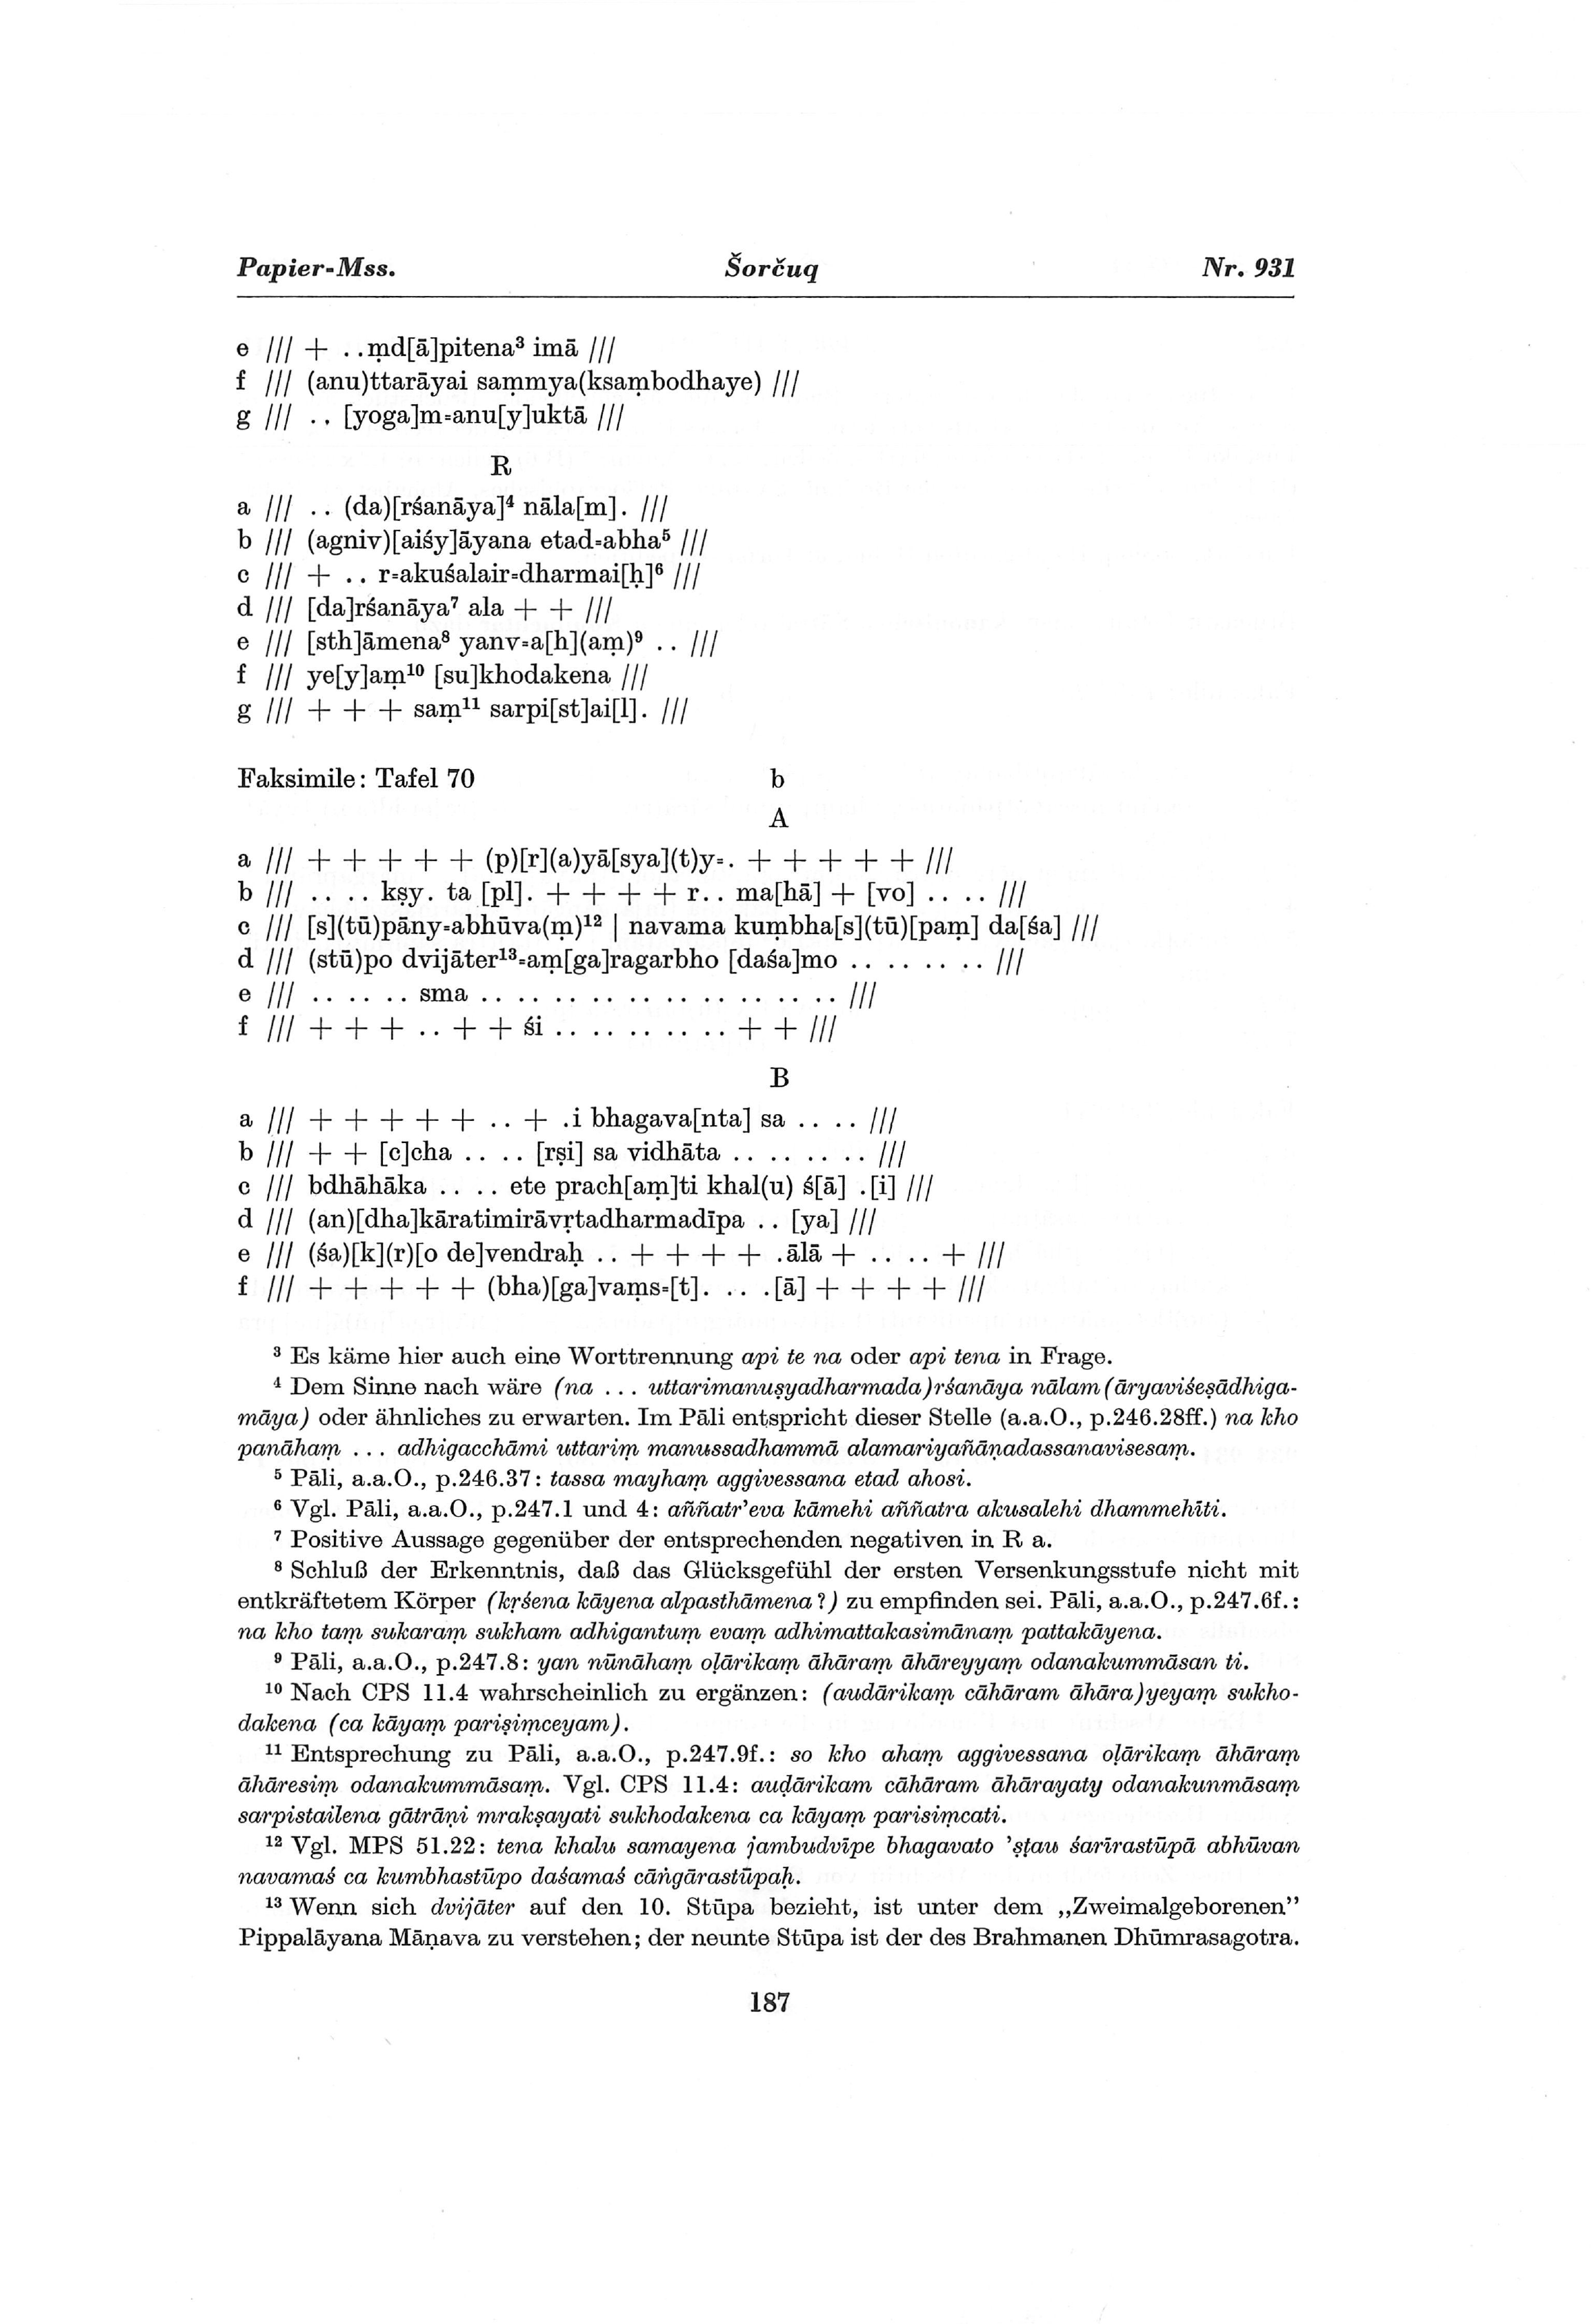 Papier-Mss. Šorčuq Nr. 931
e /// + ..ṃd[ā]pitena³ imā ///
f /// (anu)ttarāyai saṃmya(ksaṃbodhaye) ///
g /// .. [yoga]m=anu[y]uktā ///
R
a /// .. (da)[rśanāya]⁴ nāla[m]. ///
b /// (agniv)[aiśy]āyana etad=abha⁵ ///
c /// + .. r=akuśalair=dharmai[ḥ]⁶ ///
d /// [da]rśanāya⁷ ala + + ///
e /// [sth]āmena⁸ yanv=a[h](aṃ)⁹ .. ///
f /// ye[y]aṃ¹⁰ [su]khodakena ///
g /// + + + saṃ¹¹ sarpi[st]ai[l]. ///
Faksimile: Tafel 70 b
A
a /// + + + + + (p)[r](a)yā[sya](t)y=. + + + + + ///
b /// .. .. kṣy. ta [pl]. + + + + r.. ma[hā] + [vo] .. .. ///
c /// [s](tū)pāny=abhūva(ṃ)¹² | navama kuṃbha[s](tū)[paṃ] da[śa] ///
d /// (stū)po dvijāter¹³=aṃ[ga]ragarbho [daśa]mo .. .. .. .. ///
e /// .. .. .. sma .. .. .. .. .. .. .. .. .. .. ///
f /// + + + .. + + śi .. .. .. .. .. + + ///
B
a /// + + + + + .. + .i bhagava[nta] sa .. .. ///
b /// + + [c]cha .. .. [rṣi] sa vidhāta .. .. .. .. ///
c /// bdhāhāka .. .. ete prach[aṃ]ti khal(u) ś[ā] .[i] ///
d /// (an)[dha]kāratimirāvṛtadharmadīpa .. [ya] ///
e /// (śa)[k](r)[o de]vendraḥ .. + + + + .ālā + .. .. + ///
f /// + + + + + (bha)[ga]vaṃs=[t]. .. .[ā] + + + + ///
³ Es käme hier auch eine Worttrennung api te na oder api tena in Frage.
⁴ Dem Sinne nach wäre (na ... uttarimanuṣyadharmada)rśanāya nālam (āryaviśeṣādhiga-
māya) oder ähnliches zu erwarten. Im Pāli entspricht dieser Stelle (a.a.O., p.246.28ff.) na kho
panāhaṃ ... adhigacchāmi uttariṃ manussadhammā alamariyañāṇadassanavisesaṃ.
⁵ Pāli, a.a.O., p.246.37: tassa mayhaṃ aggivessana etad ahosi.
⁶ Vgl. Pāli, a.a.O., p.247.1 und 4: aññatr'eva kāmehi aññatra akusalehi dhammehīti.
⁷ Positive Aussage gegenüber der entsprechenden negativen in R a.
⁸ Schluß der Erkenntnis, daß das Glücksgefühl der ersten Versenkungsstufe nicht mit
entkräftetem Körper (kṛśena kāyena alpasthāmena?) zu empfinden sei. Pāli, a.a.O., p.247.6f.:
na kho taṃ sukaraṃ sukham adhigantuṃ evaṃ adhimattakasimānaṃ pattakāyena.
⁹ Pāli, a.a.O., p.247.8: yan nūnāhaṃ oḷārikaṃ āhāraṃ āhāreyyaṃ odanakummāsan ti.
¹⁰ Nach CPS 11.4 wahrscheinlich zu ergänzen: (audārikaṃ cāhāram āhāra)yeyaṃ sukho-
dakena (ca kāyaṃ pariṣiṃceyam).
¹¹ Entsprechung zu Pāli, a.a.O., p.247.9f.: so kho ahaṃ aggivessana oḷārikaṃ āhāraṃ
āhāresiṃ odanakummāsaṃ. Vgl. CPS 11.4: auḍārikam cāhāram āhārayaty odanakunmāsaṃ
sarpistailena gātrāṇi mrakṣayati sukhodakena ca kāyaṃ parisiṃcati.
¹² Vgl. MPS 51.22: tena khalu samayena jambudvīpe bhagavato 'ṣṭau śarīrastūpā abhūvan
navamaś ca kumbhastūpo daśamaś cāṅgārastūpaḥ.
¹³ Wenn sich dvijāter auf den 10. Stūpa bezieht, ist unter dem „Zweimalgeborenen”
Pippalāyana Māṇava zu verstehen; der neunte Stūpa ist der des Brahmanen Dhūmrasagotra.
187